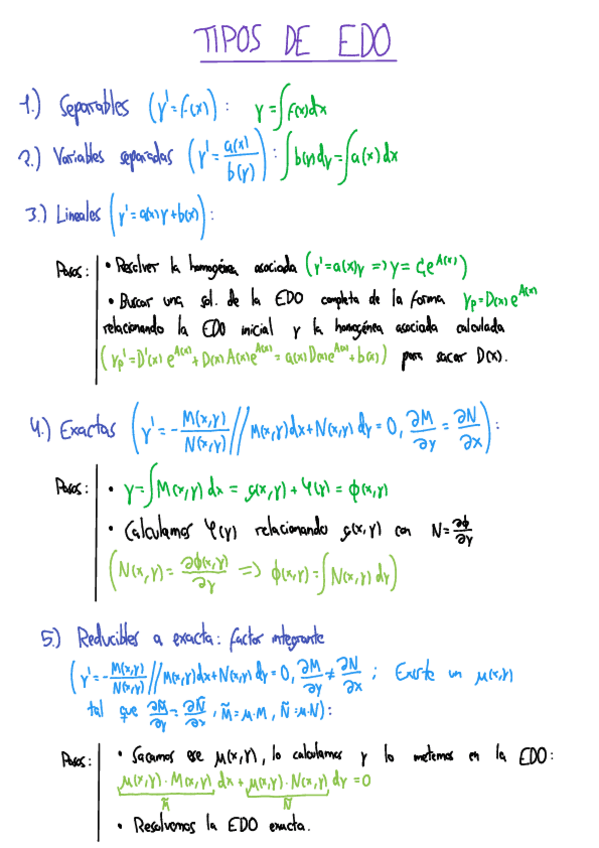 TIPOS DE EDO
1.) Separables (y'=f(x)): y=∫f(x)dx
2.) Variables separadas (y'=a(x)/b(y)): ∫b(y)dy=∫a(x)dx
3.) Lineales (y'=a(x)y+b(x)):
Pasos: • Resolver la homogénea asociada (y'=a(x)y => y=C₁e^A(x))
• Buscar una sol. de la EDO completa de la forma yp=D(x)e^A(x)
relacionando la EDO inicial y la homogénea asociada calculada
(yp'=D'(x)e^A(x)+D(x)A(x)e^A(x)=a(x)D(x)e^A(x)+b(x)) para sacar D(x).
4.) Exactas (y'=-M(x,y)/N(x,y) // M(x,y)dx+N(x,y)dy=0, ∂M/∂y=∂N/∂x):
Pasos: • y=∫M(x,y)dx=g(x,y)+φ(y)=ϕ(x,y)
• Calculamos φ(y) relacionando g(x,y) con N=∂ϕ/∂y
(N(x,y)=∂ϕ(x,y)/∂y => ϕ(x,y)=∫N(x,y)dy)
5.) Reducibles a exacta: factor integrante
(y'=-M(x,y)/N(x,y) // M(x,y)dx+N(x,y)dy=0, ∂M/∂y≠∂N/∂x; Existe un μ(x,y)
tal que ∂M̃/∂y=∂Ñ/∂x, M̃=μ·M, Ñ=μ·N):
Pasos: • Sacamos ese μ(x,y), lo calculamos y lo metemos en la EDO:
μ(x,y)·M(x,y)dx+μ(x,y)·N(x,y)dy=0
M̃ Ñ
• Resolvemos la EDO exacta.